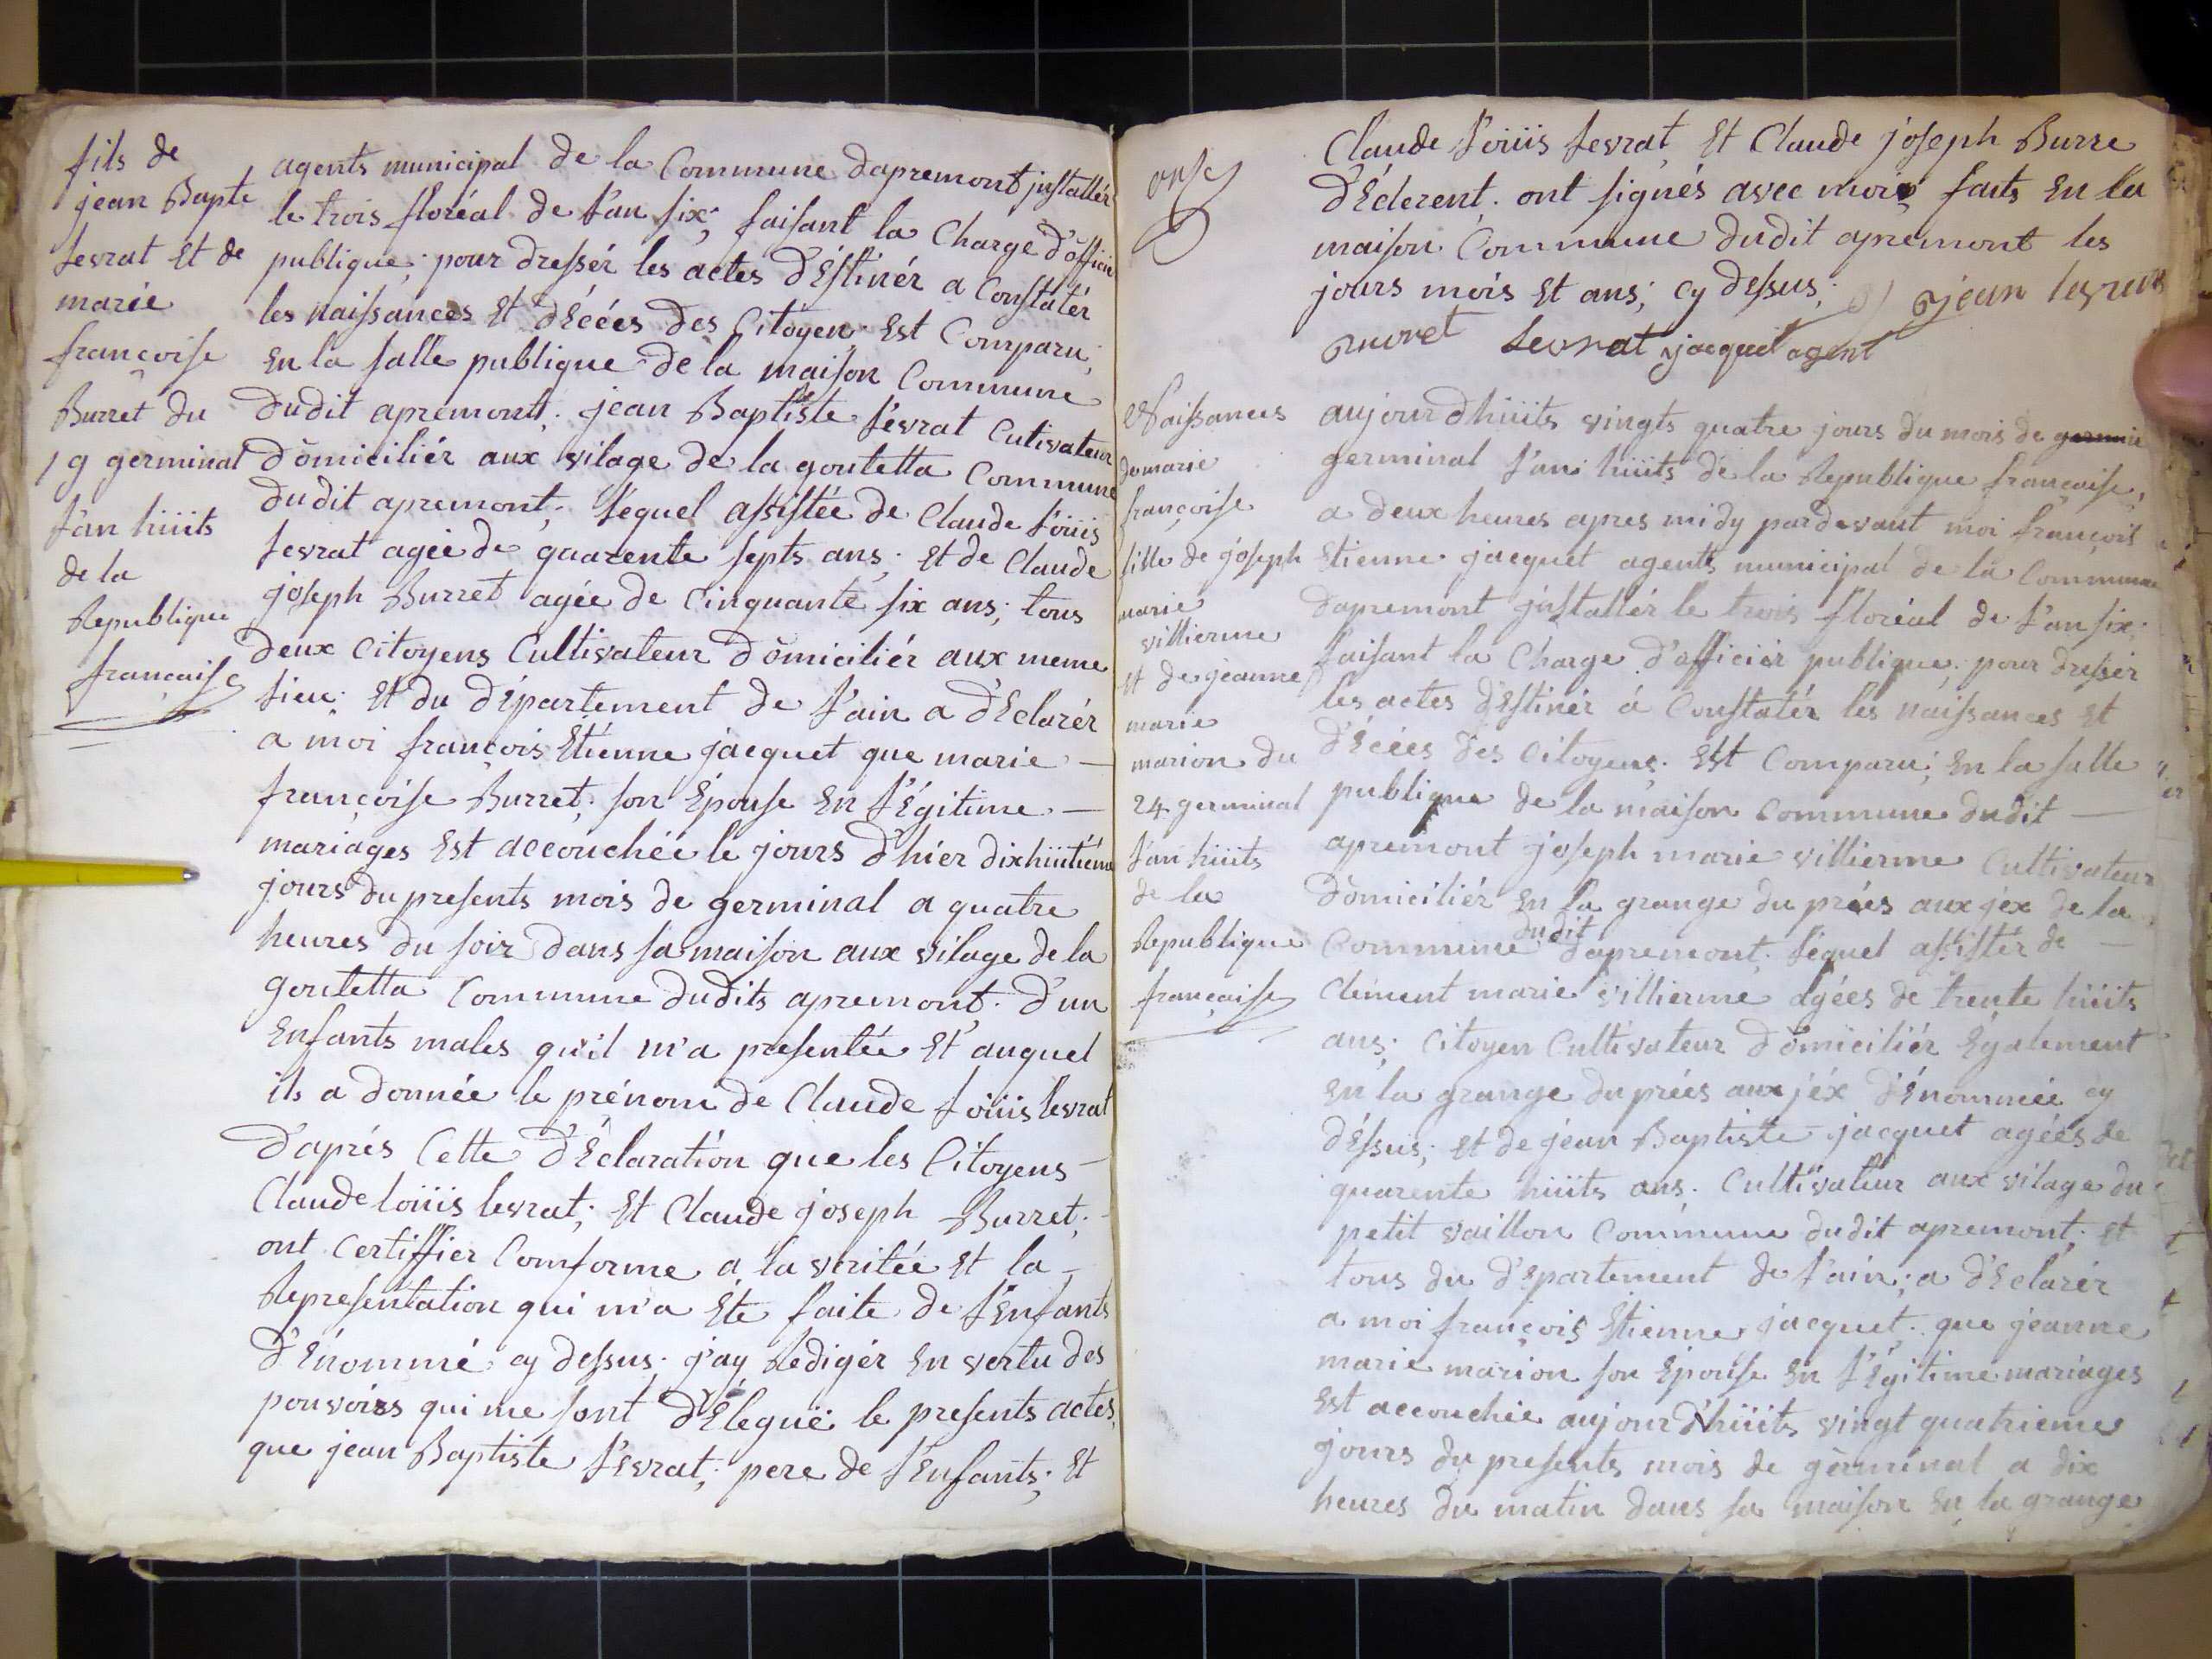 fils de
jean Bapte
levrat Et de
marie
françoise
Burret du
19 germinal
l'an hüits
de la
Republique
française
agents municipal de la Commune dapremont jnstallér
le trois floréal de l'an six; faisant la Charge d'officier
publique; pour dressér les actes d'Estinér a Constatér
les naissances Et d'Ecées des Citoyen; Est Comparu;
En la salle publique de la maison Commune
dudit apremont; jean Baptiste levrat Cutivateur
domiciliér aux vilage de la goutetta Commune
dudit apremont; léquel assistée de Claude loüis
levrat ageé de quarente septs ans; Et de Claude
joseph Burret agée de Cinquante six ans; tous
deux Citoyens Cultivateur domiciliér aux meme
lieu; Et du département de l'ain a d'Eclarér
a moi françois Etienne jacquet que marie
françoise Burret; son Epouse En l'Egitime
mariages Est accouchée le jours d'hiér dixhüitiéme
jours du presents mois de germinal a quatre
heures du soir dans sa maison aux vilage de la
goutetta Commune dudits apremont; d'un
Enfants males qu'il m'a presentée Et auquel
ils a donnée le prénom de Claude loüis levrat
d'aprés Cette d'Eclaration que les Citoyens
Claude loüis levrat; Et Claude joseph Burret;
ont Certiffier Comforme a la veritée Et la
Representation qui m'a Ete faite de l'Enfants
d'Enommé cy dessus; j'ay Redigér En vertu des
pouvoirs qui me sont d'Eleguë le presents actes,
que jean Baptiste l'evrat; pere de l'Enfants; Et
onze
Claude loüis levrat Et Claude joseph Burre
d'Eclerent; ont signés avec moi; faits En la
maison Commune dudit apremont les
jours mois Et ans; cy dessus; jean levrat
buret levrat jacquet agent
Naissances
de marie
françoise
fille de joseph
marie
villierme
Et de jeanne
marie
marion du
24 germinal
l'an hüits
de la
Republique
française
aujourdhüits vingts quatre jours du mois de germin
germinal l'an hüits de la Republique française,
a deux heures apres midy pardevant moi françois
Etienne jacquet agents municipal de la Commune
dapremont jnstallér le trois floréal de l'an six;
faisant la Charge d'officiér publique; pour dressér
les actes d'Estinér à Constatér les naissances Et
d'Ecées des Citoyens; Est Comparu; En la salle
publique de la maison Commune dudit
apremont joseph marie villierme Cultivateur
domiciliér En la grange du prées aux jéx de la
Commune dudit d'apremont; léquel assistér de
Clement marie villierme agées de trente hüits
ans; Citoyen Cultivateur domiciliér Egalement
En la grange du prées aux jéx d'Enommée cy
d'Essus; Et de jean Baptiste jacquet agées de
quarente hüits ans; Cultivateur aux vilage du
petit vaillon Commune dudit apremont; Et
tous du d'epartement de l'ain; a d'Eclarér
a moi françois Etienne jacquet; que jeanne
marie marion son Epouse En l'Egitime mariages
Est accouchée aujourd'hüits vingt quatrieme
jours du presents mois de germinal a dix
heures du matin dans sa maison En la grange